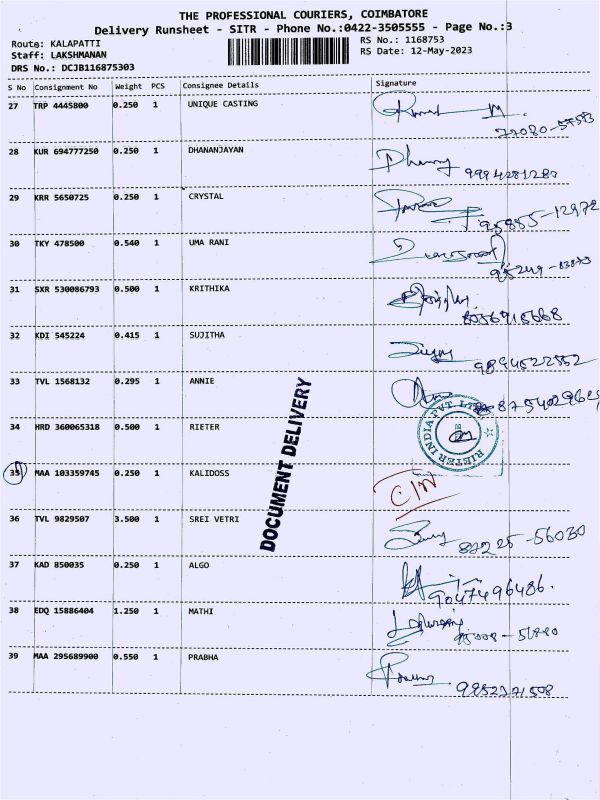 THE PROFESSIONAL COURIERS, COIMBATORE
Delivery Runsheet - SITR - Phone No.:0422-3505555 - Page No.:3
Route: KALAPATTI
RS No.: 1168753
Staff: LAKSHMANAN
RS Date: 12-May-2023
DRS No.: DCJB116875303
S No Consignment No Weight PCS Consignee Details Signature
27 TRP 4445800 0.250 1 UNIQUE CASTING
28 KUR 694777250 0.250 1 DHANANJAYAN
9994281280
29 KRR 5650725 0.250 1 CRYSTAL
95855-12972
30 TKY 478500 0.540 1 UMA RANI
31 SXR 530086793 0.500 1 KRITHIKA
8056915668
32 KDI 545224 0.415 1 SUJITHA
9894522552
33 TVL 1568132 0.295 1 ANNIE
8754029625
34 HRD 360065318 0.500 1 RIETER
RIETER INDIA PVT. LTD
35 MAA 103359745 0.250 1 KALIDOSS
DOCUMENT DELIVERY
36 TVL 9829507 3.500 1 SREI VETRI
87225-56030
37 KAD 850035 0.250 1 ALGO
9047496486.
38 EDQ 15886404 1.250 1 MATHI
39 MAA 295689900 0.550 1 PRABHA
9952371508